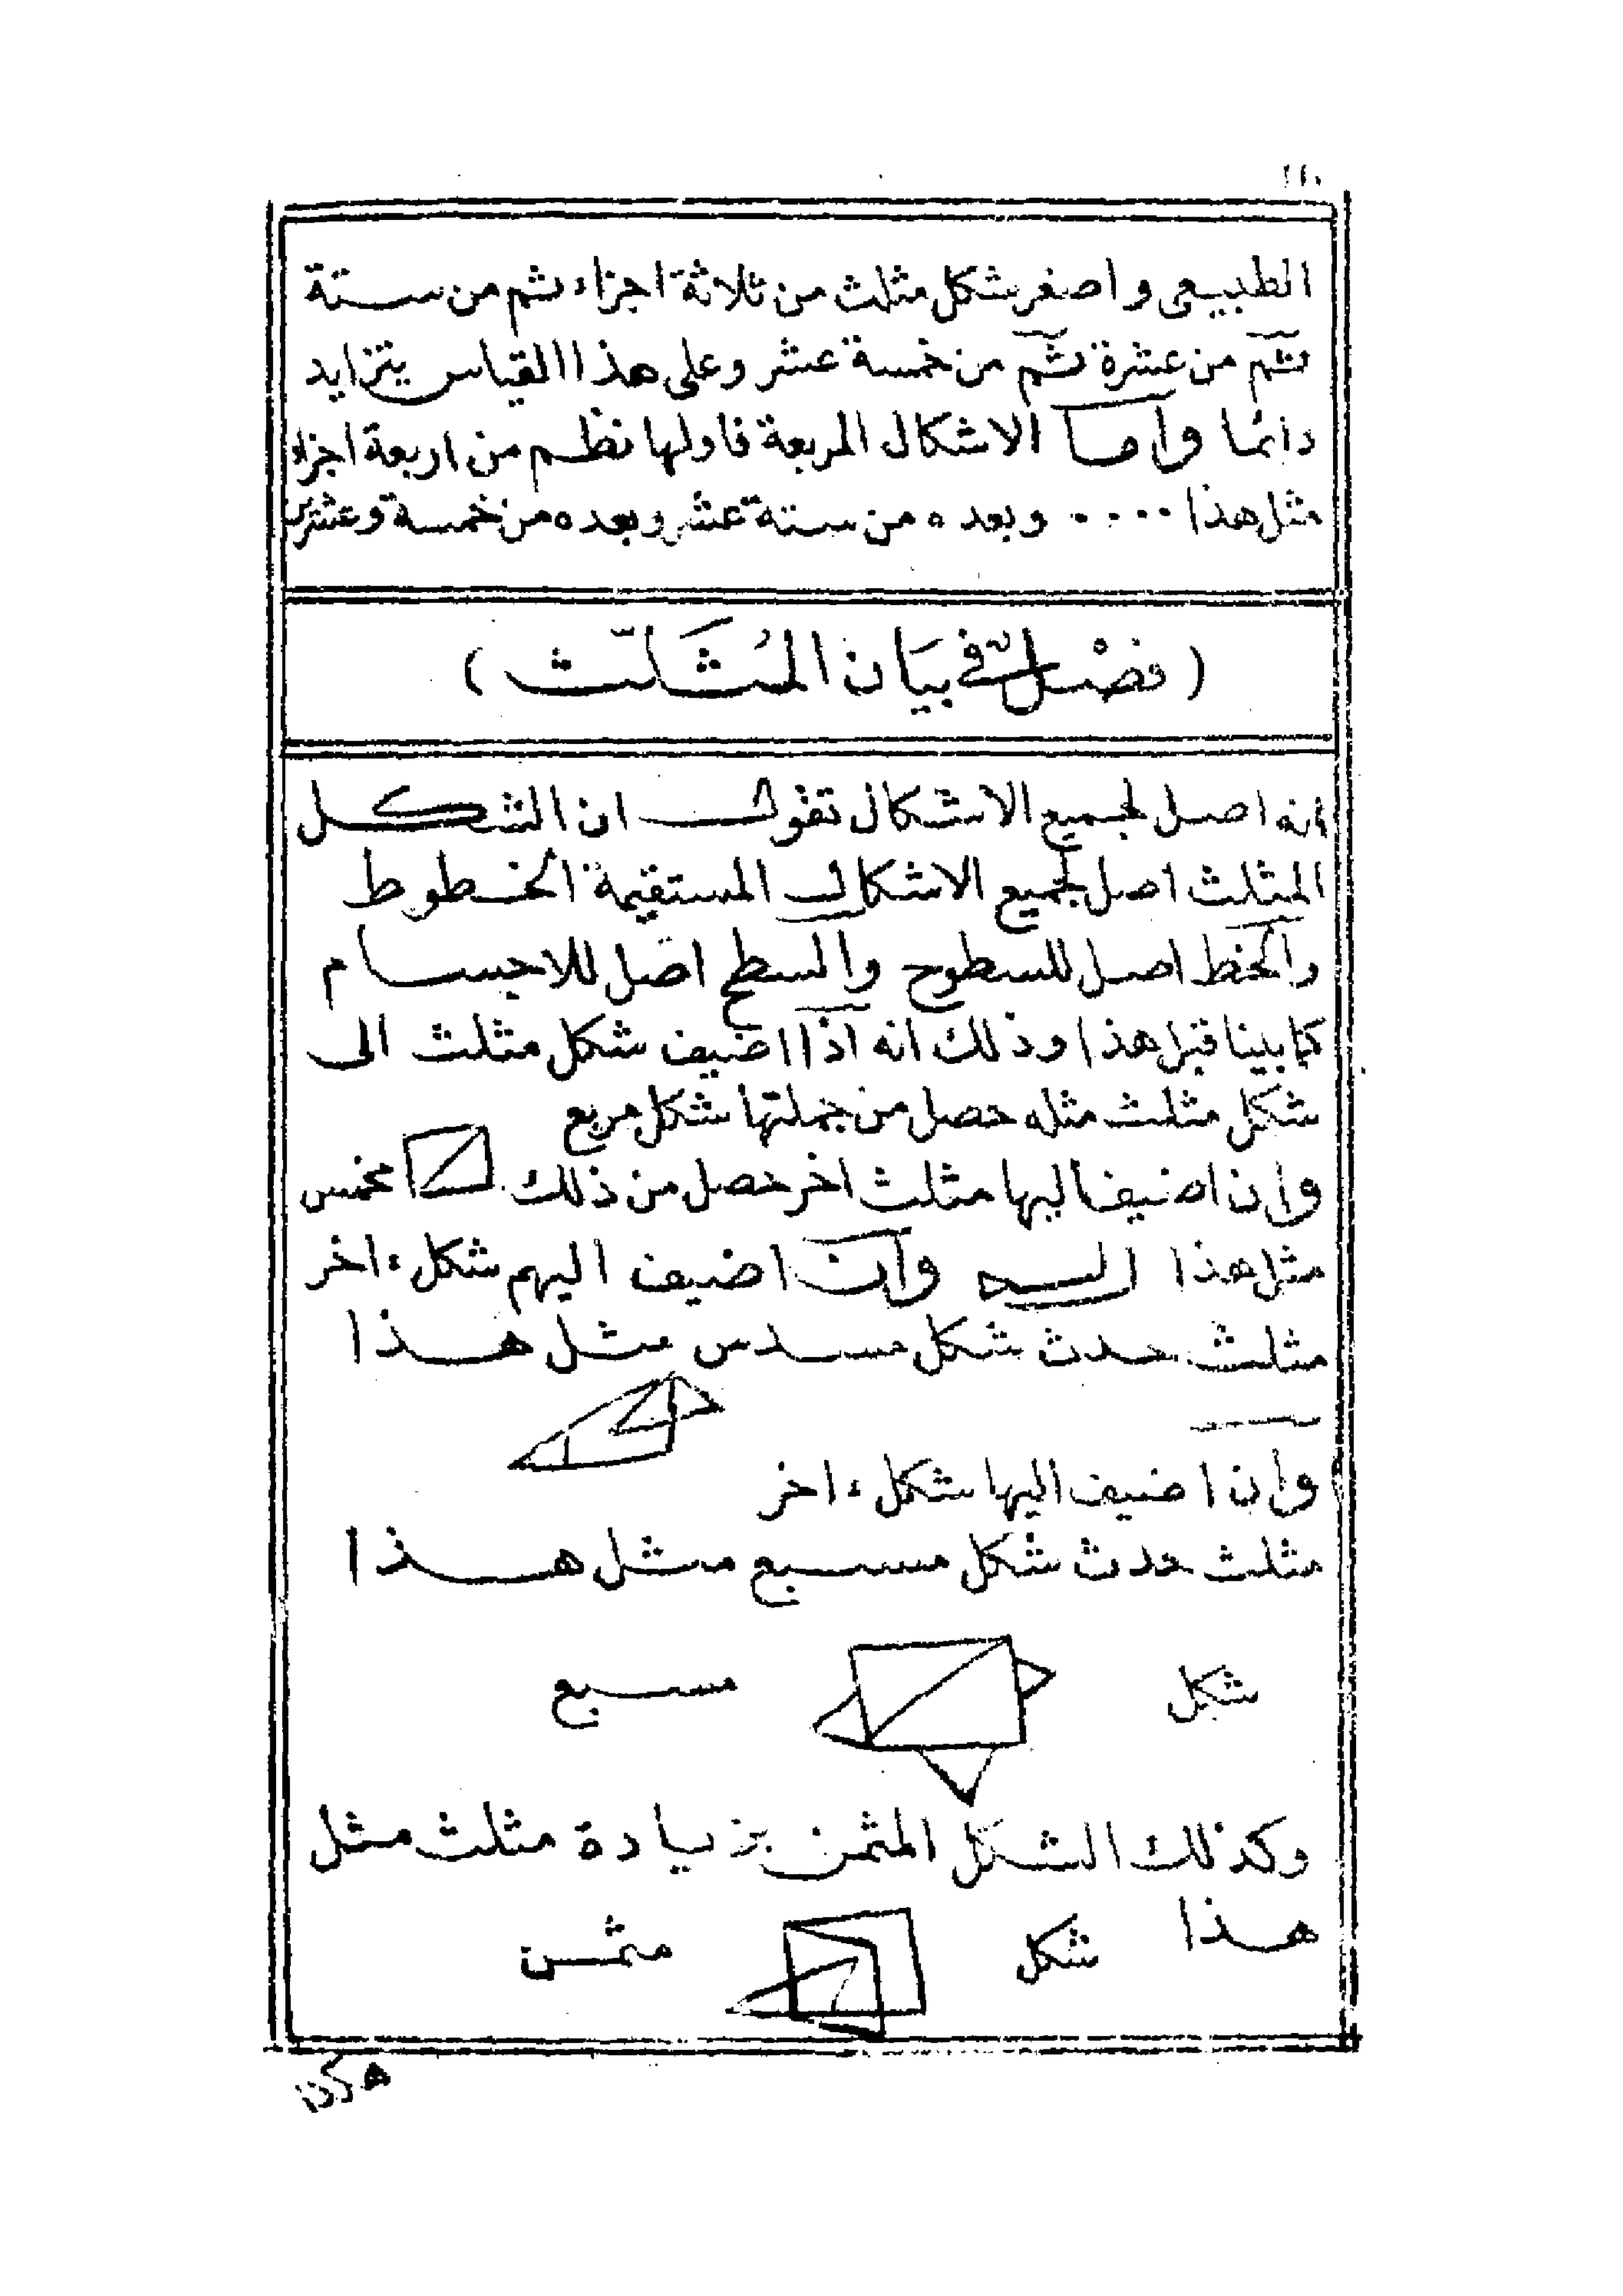 ١١٠
الطبيعى واصغر شكل مثلث من ثلاثة اجزاء ثم من ستة
ثم من عشرة ثم من خمسة عشر وعلى هذا القياس يتزايد
دائما واما الاشكال المربعة فاولها نظم من اربعة اجزاء
مثل هذا .... وبعده من ستة عشر وبعده من خمسة وعشرين
(فصل في بيان المثلث)
انه اصل لجميع الاشكال تقول ان الشكل
المثلث اصل لجميع الاشكال المستقيمة الخطوط
والخط اصل للسطوح والسطح اصل للاجسام
كما بينا قبل هذا وذلك انه اذا اضيف شكل مثلث الى
شكل مثلث مثله حصل من جملتها شكل مربع
وان اضيف اليها مثلث اخر حصل من ذلك مخمس
مثل هذا وان اضيف اليهم شكل ءاخر
مثلث حدث شكل مسدس مثل هذا
وان اضيف اليها شكل ءاخر
مثلث حدث شكل مسبع مثل هذا
شكل مسبع
وكذلك الشكل المثمن بزيادة مثلث مثل
هذا شكل مثمن
هكذا